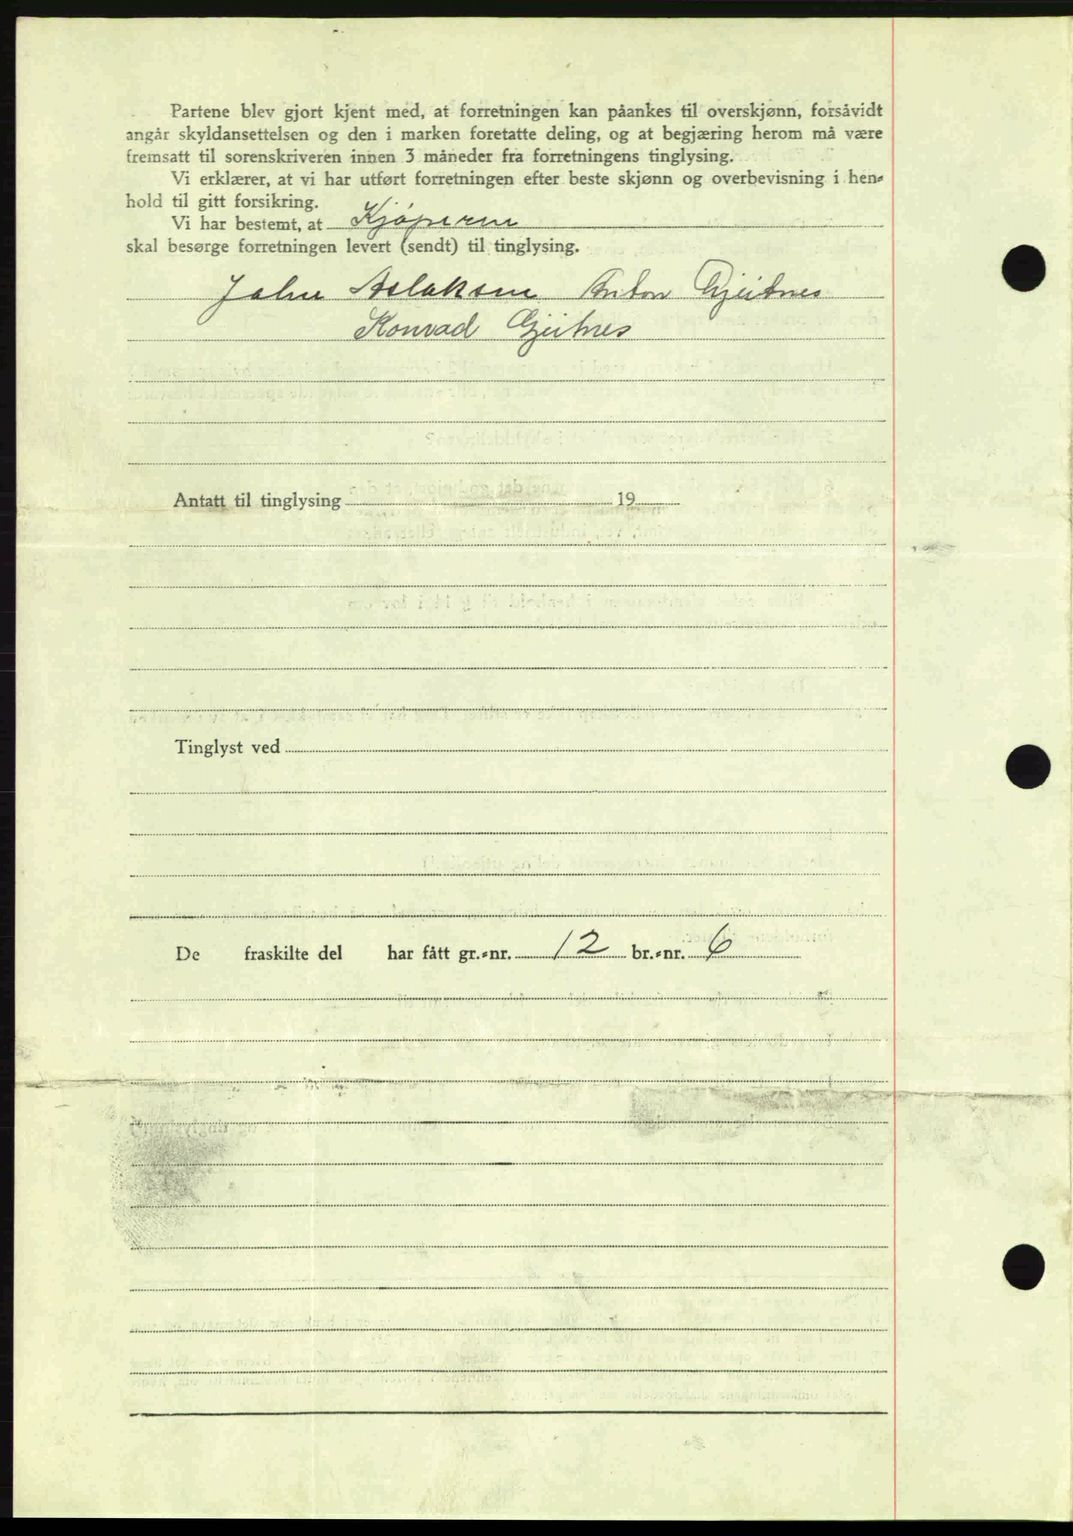 Partene blev gjort kjent med, at forretningen kan påankes til overskjønn, forsåvidt
angår skyldansettelsen og den i marken foretatte deling, og at begjæring herom må være
fremsatt til sorenskriveren innen 3 måneder fra forretningens tinglysing.
Vi erklærer, at vi har utført forretningen efter beste skjønn og overbevisning i hen-
hold til gitt forsikring.
Vi har bestemt, at Kjøperne
skal besørge forretningen levert (sendt) til tinglysing.
John Aslaksen Anton Gjeitnes
Konrad Gjeitnes
Antatt til tinglysing 19
Tinglyst ved
De fraskilte del har fått gr.-nr. 12 br.-nr. 6